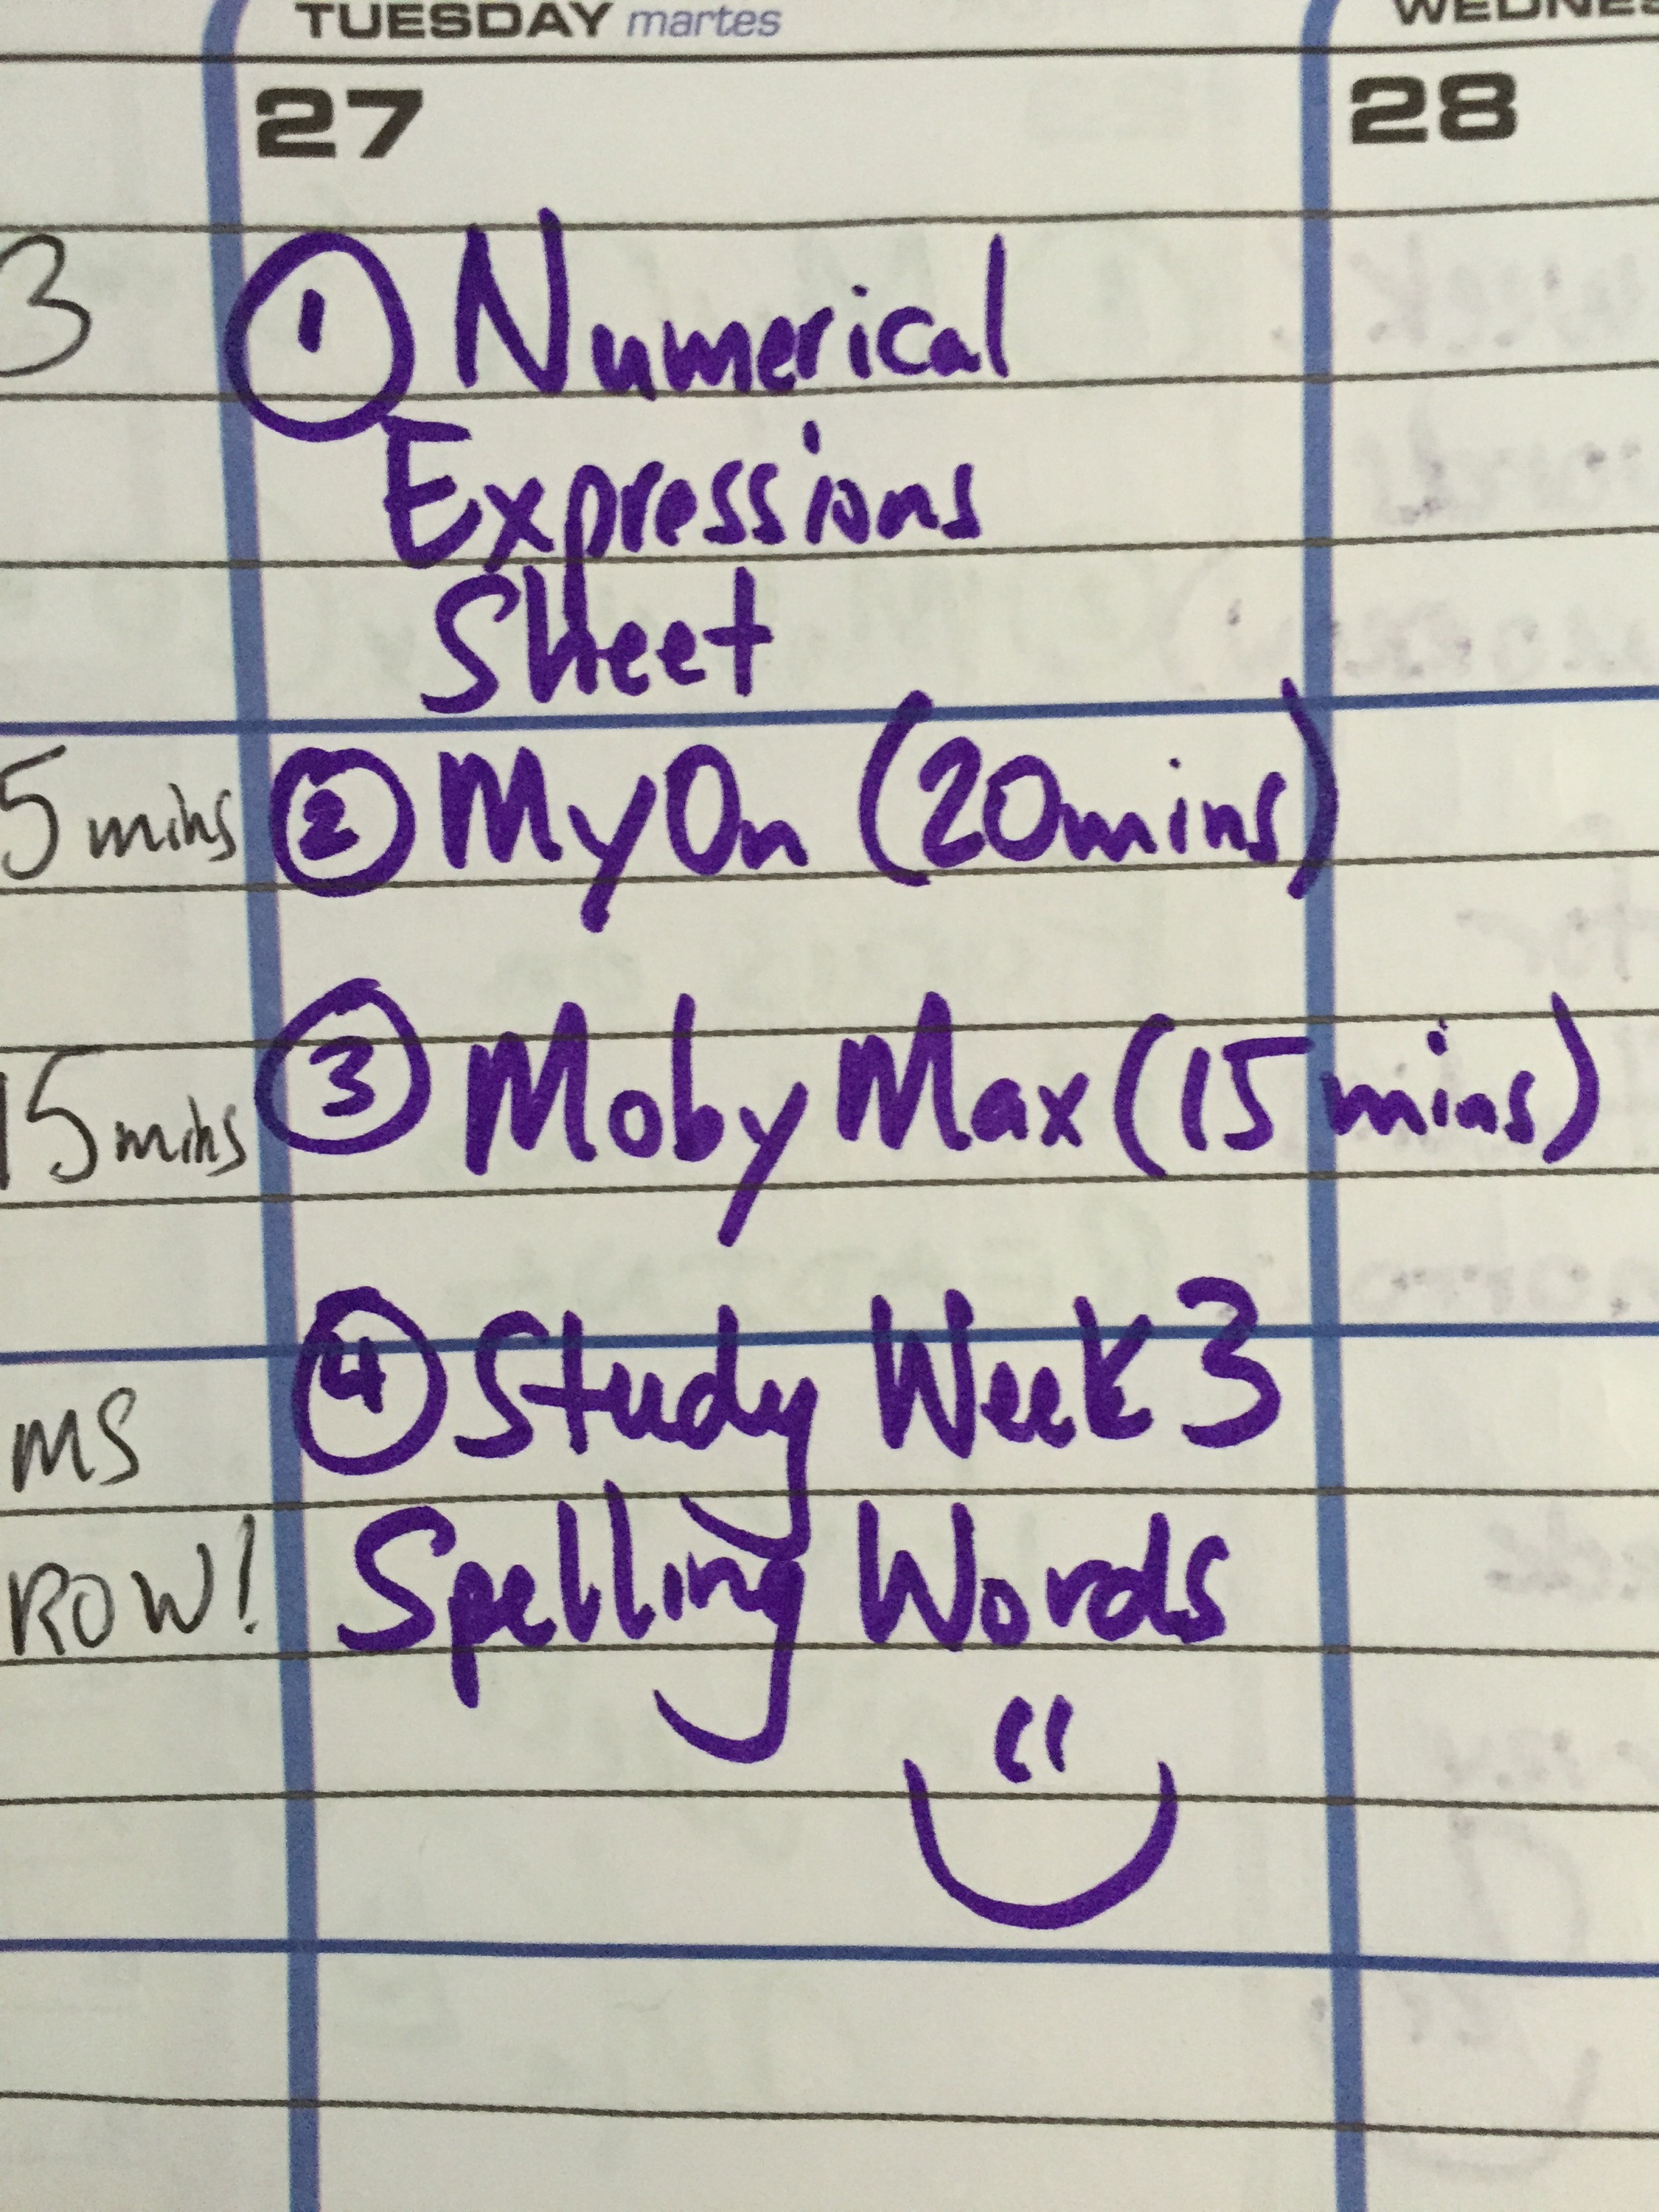 TUESDAY martes
27
28
3
① Numerical
Expressions
Sheet
5 mins
② MyOn (20mins)
15 mins
③ Moby Max (15 mins)
④ Study Week 3
MS
Spelling Words
ROW!